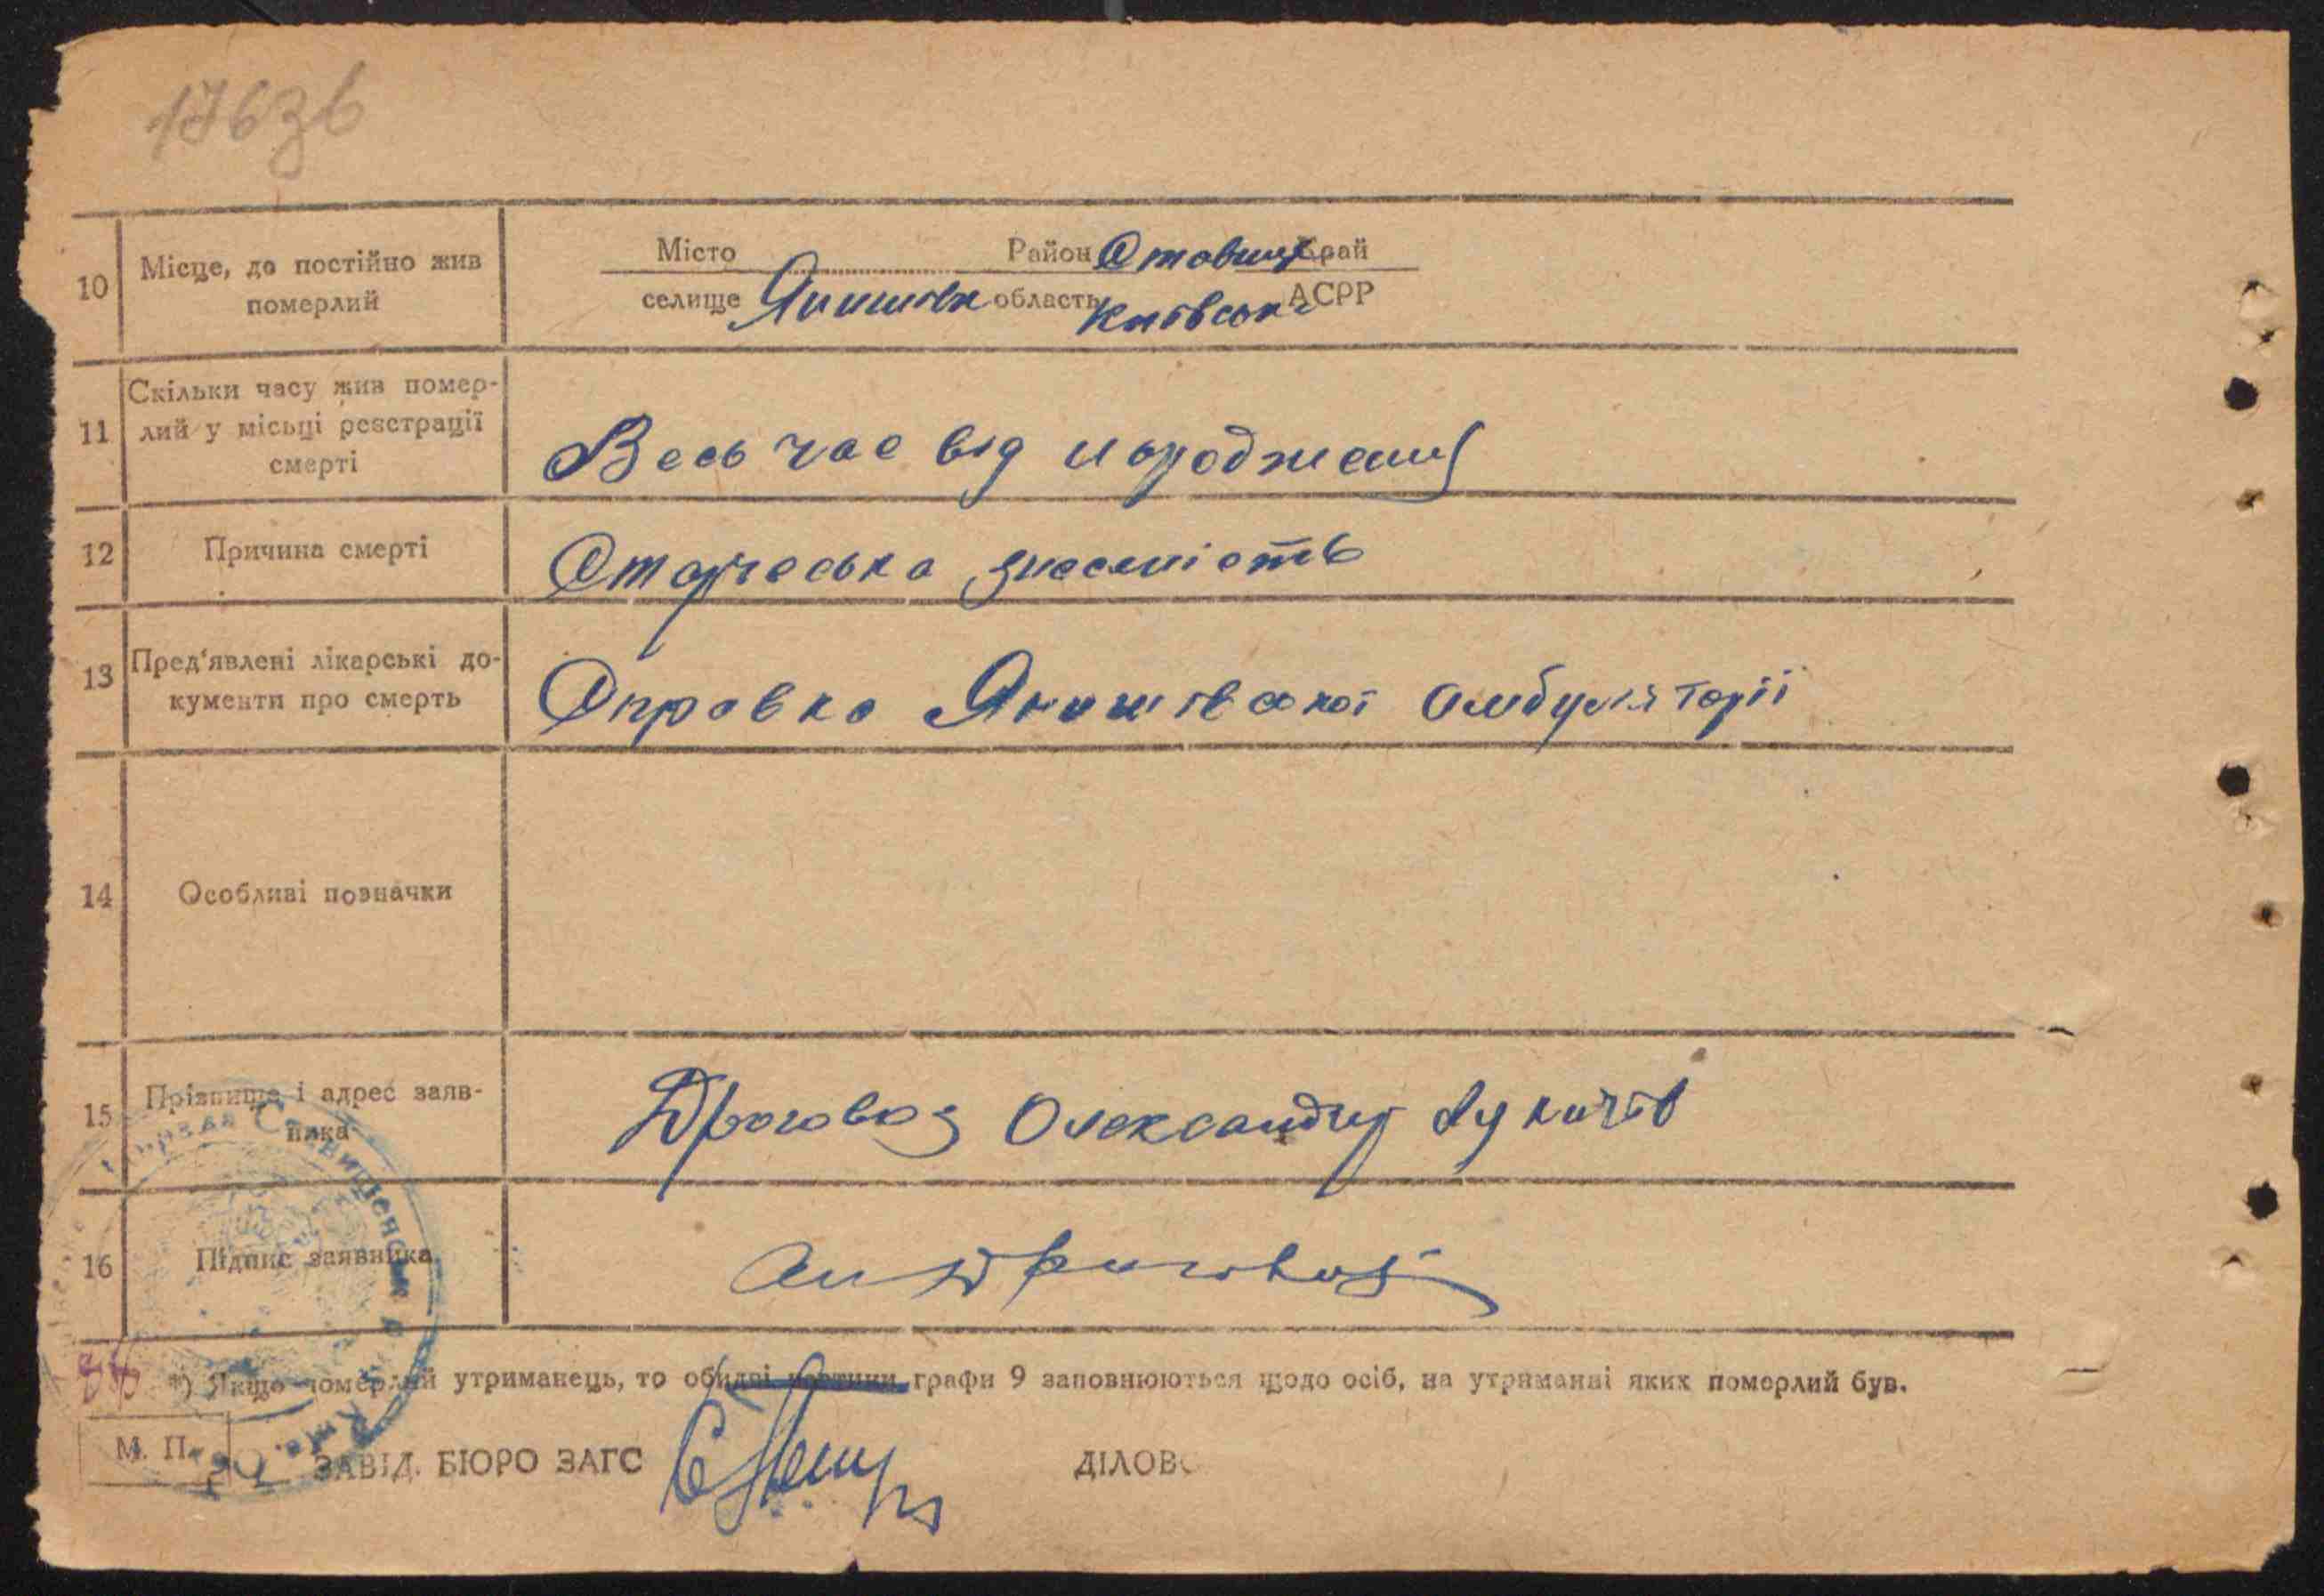 176зв
10 Місце, де постійно жив померлий
Місто Район Ставищ Край
селище Янишівк область Київська АСРР
11 Скільки часу жив помер-
лий у місьці реєстрації
смерті
Весь час від народження
12 Причина смерті
Старческа знесеність
13 Пред'явлені лікарські до-
кументи про смерть
Справка Янишівської амбуляторії
14 Особливі позначки
15 Прізвище і адрес заяв-
ника
Дроговоз Олександр
16 Підпис заявника
*) Якщо померлий утриманець, то обидві частини графи 9 заповнюються щодо осіб, на утриманні яких померлий був.
М. П. ЗАВІД. БЮРО ЗАГС
ДІЛОВ